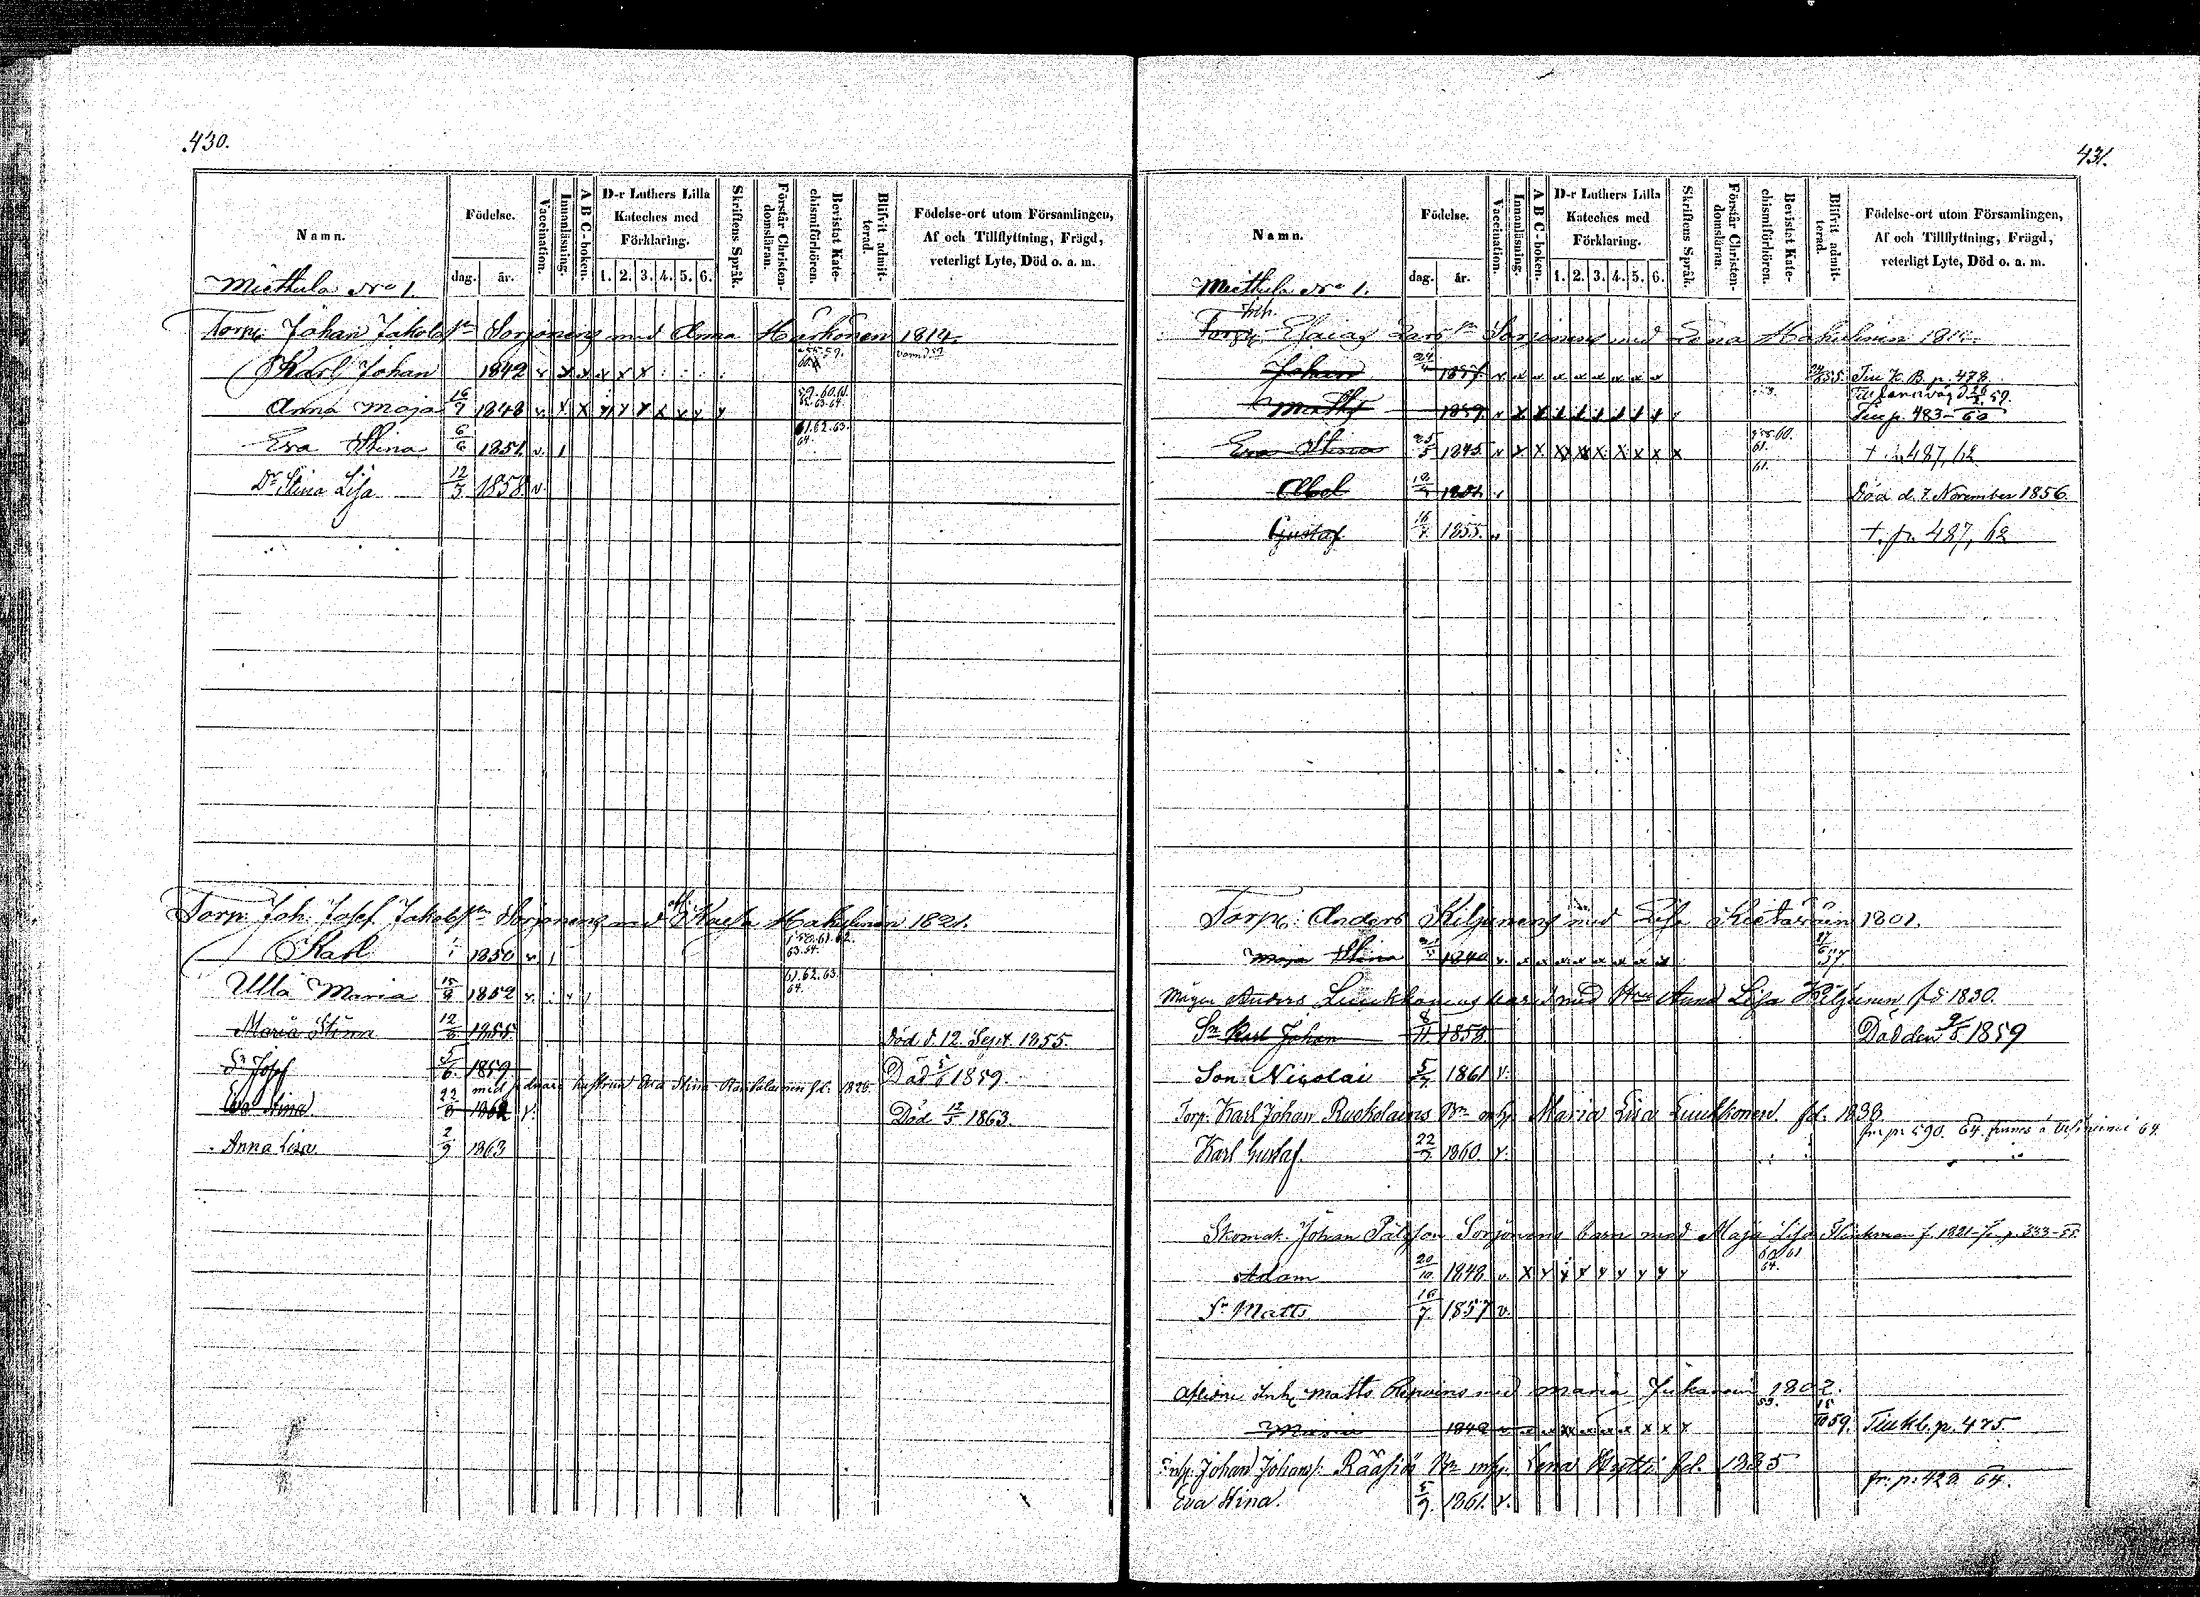 430.
Namn.
Födelse.
dag. år.
Vaccination.
Innanläsning.
A B C-boken.
D-r Luthers Lilla
Kateches med
Förklaring.
1. 2. 3. 4. 5. 6.
Skriftens Språk.
Förstår Christen-
domsläran.
Bevistat Kate-
chismiförhören.
Blifvit admit-
terad.
Födelse-ort utom Församlingen,
Af och Tillflyttning, Frägd,
veterligt Lyte, Död o. a. m.
Miettula No 1.
Torp. Johan Jakobs Sn Sorjonens med Anna Härkönen 1814.
Karl Johan 1842 v x x x x x
Anna Maja 16/7 1848 v. x x x x x x x x x 59.60.61. 62.63.64.
Eva Stina 6/6 1851 v. 61.62.63. 64.
Dr Stina Lisa 12/3 1858 v.
Torp. Joh. Josef Jakobs Sn Sorjonens med Kaisa Hakulinen 1821.
Karl 1850 v. 63.64.
Ulla Maria 15/9 1852 v. 61.62.63. 64.
Maria Stina 12/8 1855 Död d. 12. Sept. 1855.
Sn Josef 5/6 1859 Död 5/6 1859.
Eva Stina 22/8 1862 v. Död 12/5 1863.
Anna Lisa 2/9 1863
431.
Namn.
Födelse.
dag. år.
Vaccination.
Innanläsning.
A B C-boken.
D-r Luthers Lilla
Kateches med
Förklaring.
1. 2. 3. 4. 5. 6.
Skriftens Språk.
Förstår Christen-
domsläran.
Bevistat Kate-
chismiförhören.
Blifvit admit-
terad.
Födelse-ort utom Församlingen,
Af och Tillflyttning, Frägd,
veterligt Lyte, Död o. a. m.
Miettula No 1.
Inh.
Torp. Esaias Lars Sn Sorjonens med Lena Hakulinen
Johan 24/4 v x x x x x x x x 55. K. B. p. 478.
Matts v x x x x x x x x p. 483-60
Eva Stina 25/5 1845. v x x x x x x x x x 61. 487, 62
Abel 1851 Död d. 7. November 1856.
Gustaf 16/7 1855. v p. 487, 62
Torp. Anders Kiljunens med Lisa Kietäväin 1801.
Maja Stina 1840 v. x x x x x x x x 57.
Mågen Anders Luukkonens barn med Hu Anna Lisa Kiljunen fd 1830.
Sn Karl Johan 8/11 1858. Död den 9/5 1859
Son Nicolai 5/7 1861 v.
Torp. Karl Johan Ruokolains Bn o. h. Maria Lisa Luukkonen. fd. 1838
fr. p. 590. 64.
Karl Gustaf. 22/7 1860. v.
Skomak. Johan Pålsson Sorjonens barn med Maja Lisa f. 1821 fr. p. 333-55.
Adam 20/10 1848. v. x x x x x x x x x 60 61 64.
Sn Matts 16/7 1857 v.
Aflidne Inh. Matts Repoins med Maria 1802.
Maria 1842 v x x x x x x x x x 15/10 59. p. 475.
Inh. Johan Johans. Rääsiä Bn m. h. Lena Hytti fd. 1835
fr. p. 428 64.
Eva Stina. 5/9 1861. v.